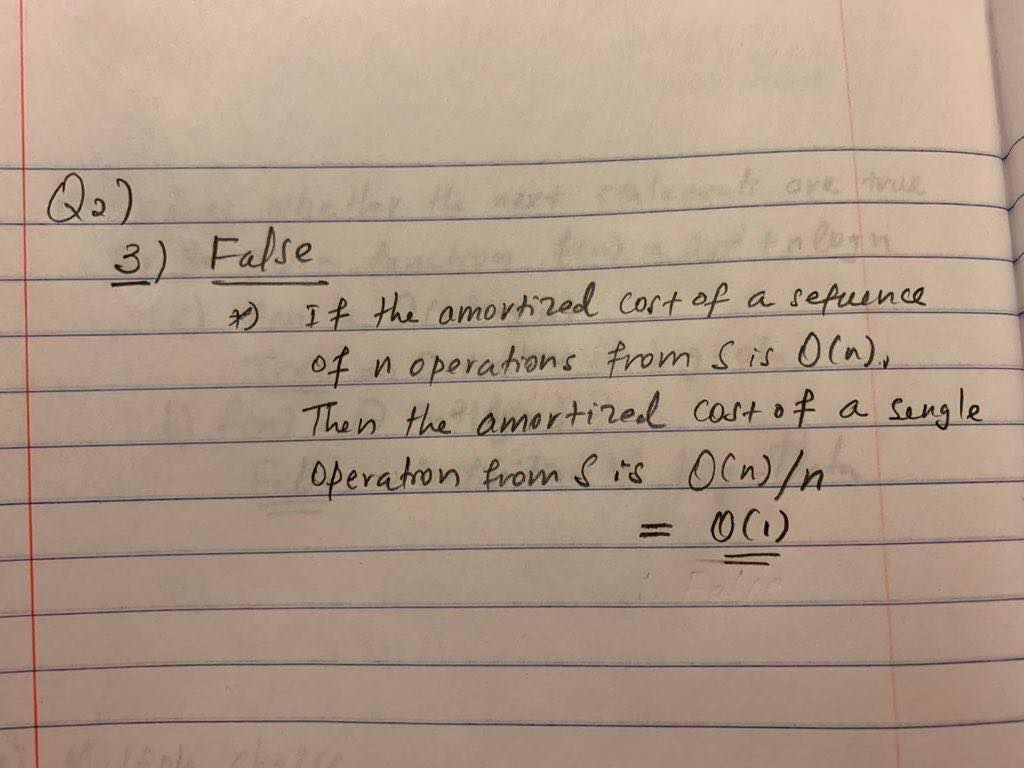 Q2)
3) False
*) If the amortized cost of a sefuence
of n operations from S is O(n),
Then the amortized cost of a sengle
Operation from S is O(n)/n
= O(1)